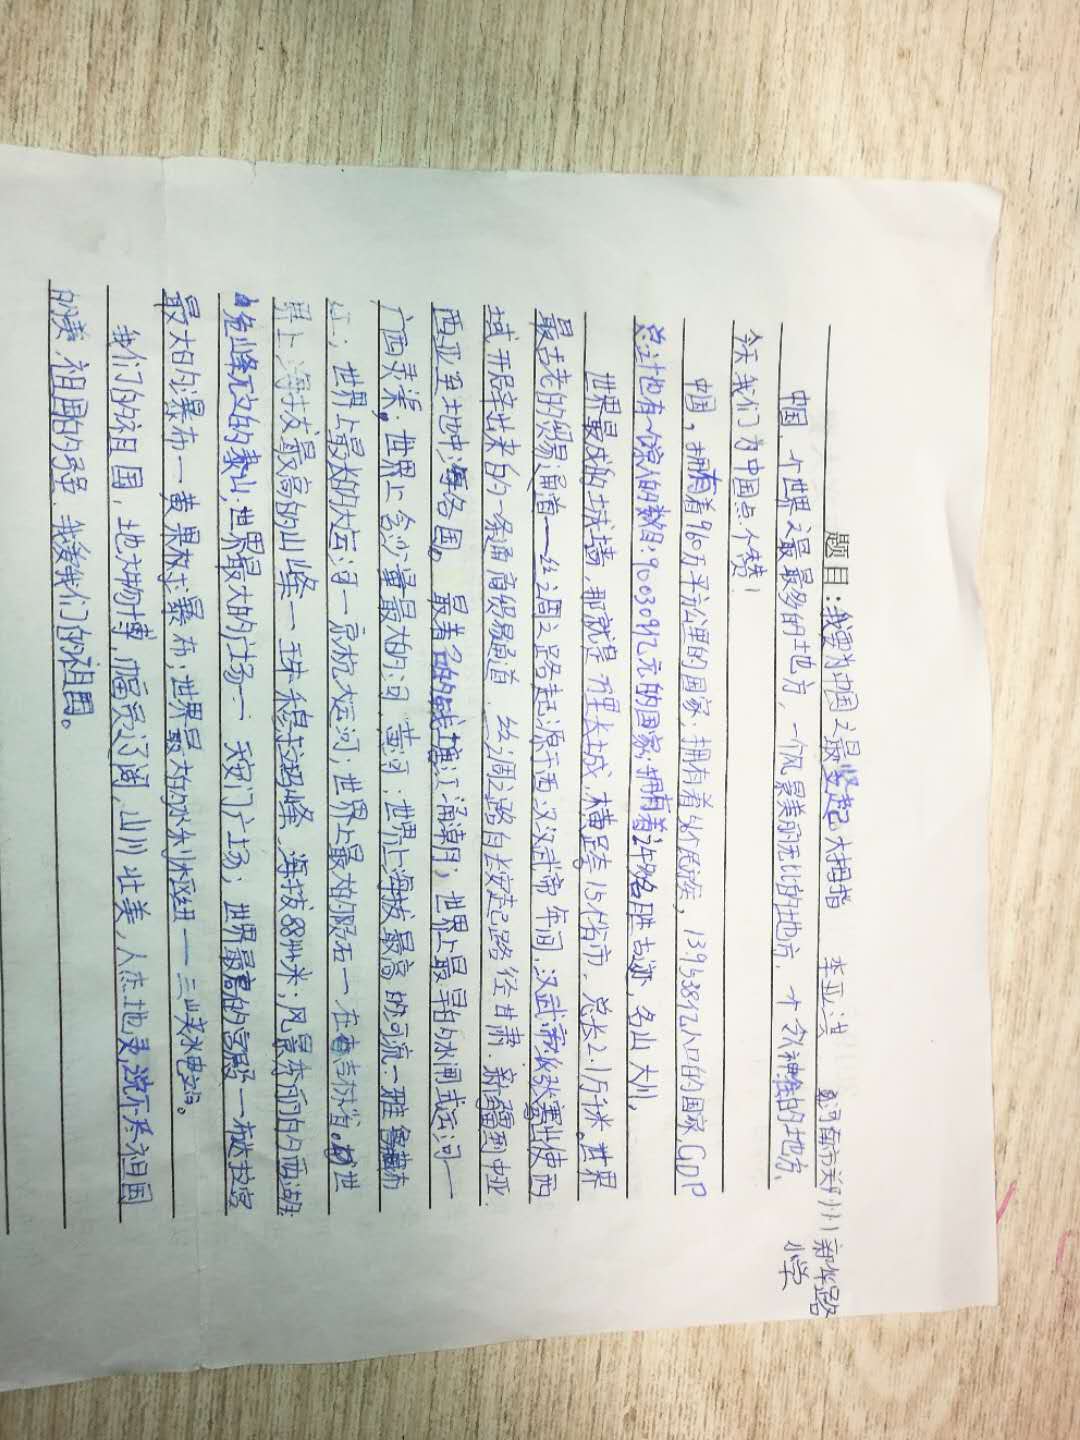 题目：我要为中国之最竖起大拇指 李亚淇 河南郑州新华路
小学
中国，个世界之最最多的地方，一个风景美丽无比的地方，个令人神往的地方，
今天我们为中国点个赞！
中国，拥有着960万平方公里的国家，拥有着56个民族，13.9538亿人口的国家，GDP
总计也有 的数目：900309亿元的国家；拥有着许多名胜古迹，名山大川。
世界最长的城墙，那就是万里长城，横跨15个省市，总长2.1万千米。世界
最古老的贸易通道——丝绸之路起源于西汉汉武帝年间，汉武帝派张骞出使西
域开辟出来的一条通商贸易通道，丝绸之路自长安起路经甘肃、新疆到中亚
西亚至地中海各国。最著名的 江涌潮；世界上最早的水闸式运河—
广西灵渠，世界上含沙量最大的河，黄河；世界上海拔最高的河流—雅鲁藏布
江；世界上最长的大运河—京杭大运河；世界上最大的陨石—在吉林省。世
界上海拔最高的山峰—珠穆拉玛峰，海拔8844米；风景秀丽的西湖；
危峰兀立的泰山；世界最大的广场—天安门广场；世界最高的宫殿—布达拉宫
最大的瀑布—黄果树瀑布；世界最大的水利枢纽——三峡水电站。
我们的祖国，地大物博，幅员辽阔，山川壮美，人杰地灵，说不尽祖国
的美，祖国的强，我爱我们的祖国。